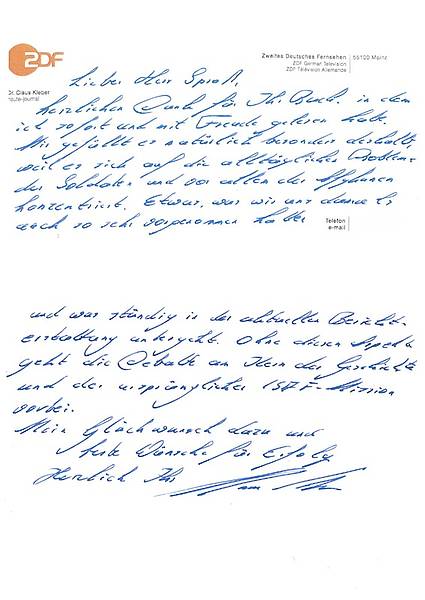 ZDF
Zweites Deutsches Fernsehen | 55100 Mainz
ZDF German Television
ZDF Télévision Allemande
Dr. Claus Kleber
heute-journal
Lieber Herr Spieß,
herzlichen Dank für Ihr Buch, in dem
ich sofort und mit Freude gelesen habe.
Mir gefällt es natürlich besonders deshalb,
weil es sich auf die alltäglichen Probleme
der Soldaten und vor allem der Afghanen
konzentriert. Etwas, was wir uns damals
auch so sehr vorgenommen hatten
Telefon
e-mail
und was ständig in der aktuellen Bericht-
erstattung untergeht. Ohne diesen Aspekt
geht die Debatte am Kern der Geschichte
und der ursprünglichen ISAF-Mission
vorbei.
Mein Glückwunsch dazu und
beste Wünsche für Erfolg
Herzlich Ihr